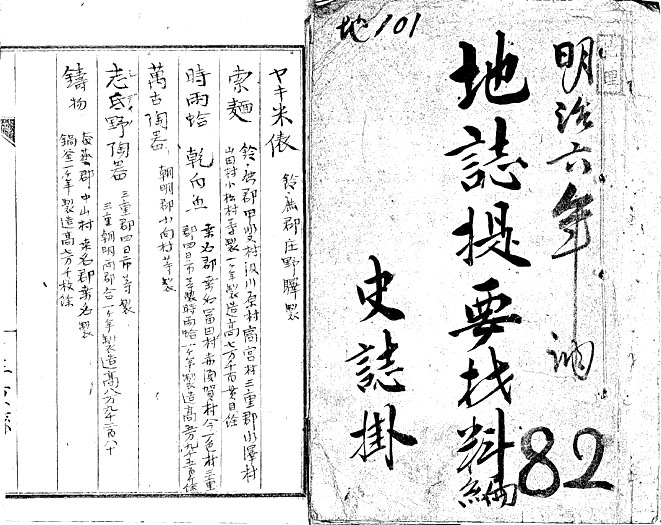 地101
明治六年 納
地誌提要材料編
史誌掛
82
ヤキ米俵 鈴鹿郡庄野驛製
索麺 鈴鹿郡甲斐村汲川原村高宮村三重郡小澤村
山田村小松村等製一ケ年製造高七万千百貫目餘
時雨蛤 乾白魚 桑名郡桑名冨田村赤須賀村今一色村三重
郡四日市等製時雨蛤一ケ年製造高
萬古陶器 朝明郡小向村等製
志氐野陶器 三重郡四日市等製
三重朝明両郡合一ケ年製造高八万九千二百八十
鋳物 安藝郡中山村桑名郡桑名製
鍋釜一ケ年製造高七万千枚餘
三重縣